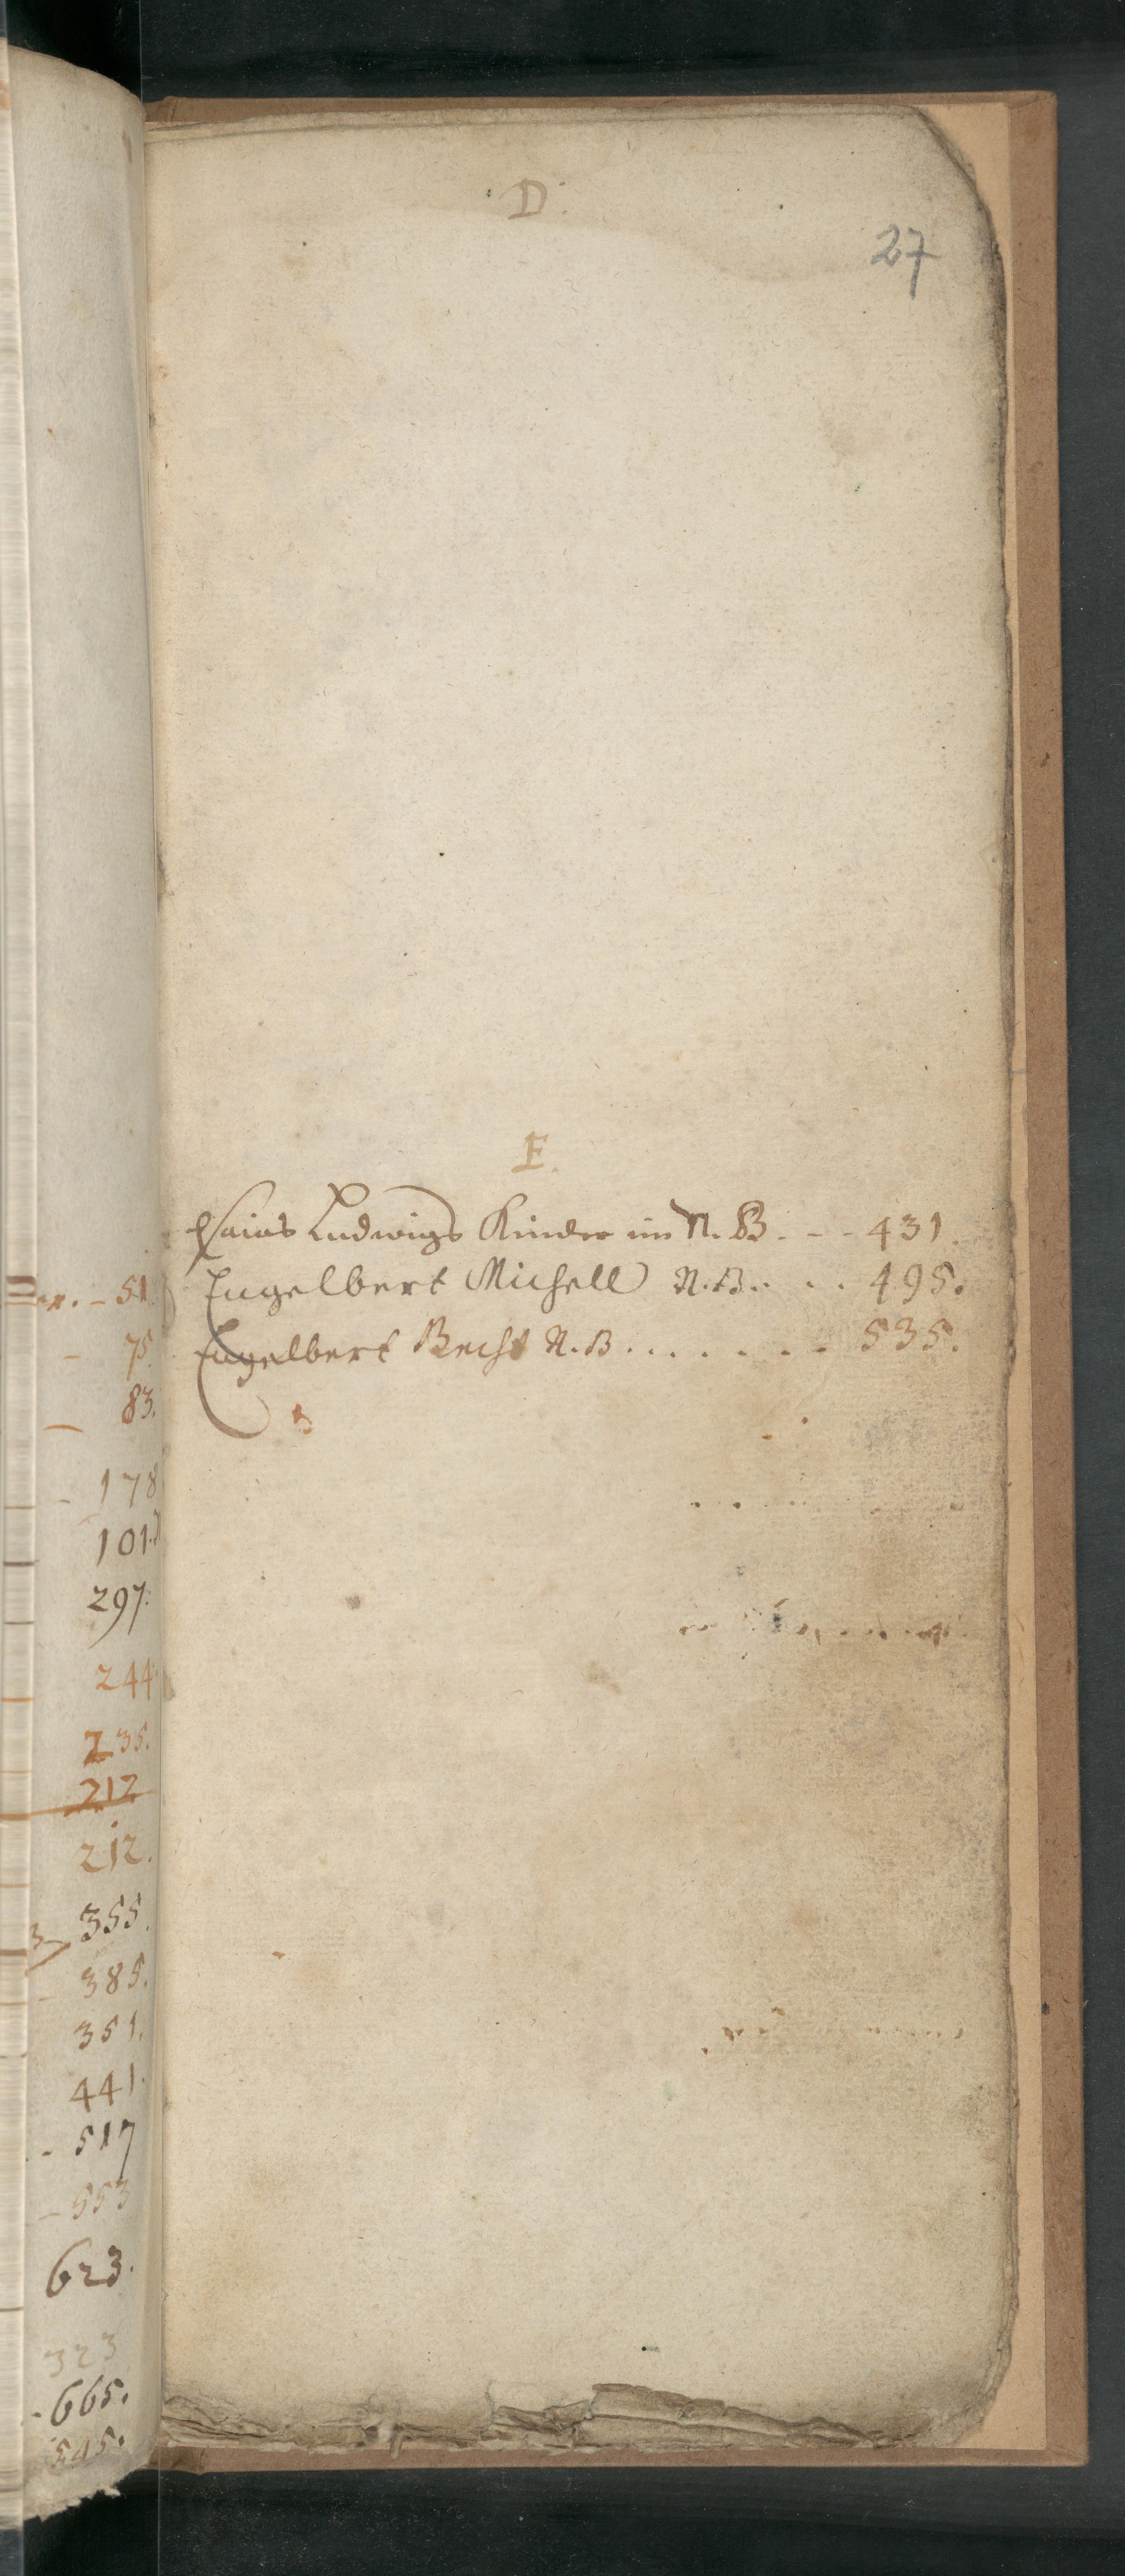 er. - 51.
- 75.
- 83.
- 178
101.
297.
244
235.
212
212.
355.
- 385.
351.
441.
- 517
- 553
623.
323
- 665.
545.
D.
27
E.
Esaias Ludwigs Kinder im N. B. - - 431.
Engelbert Michell N. B. . . . 495.
Engelbert Becht N. B. . . . . . . 535.